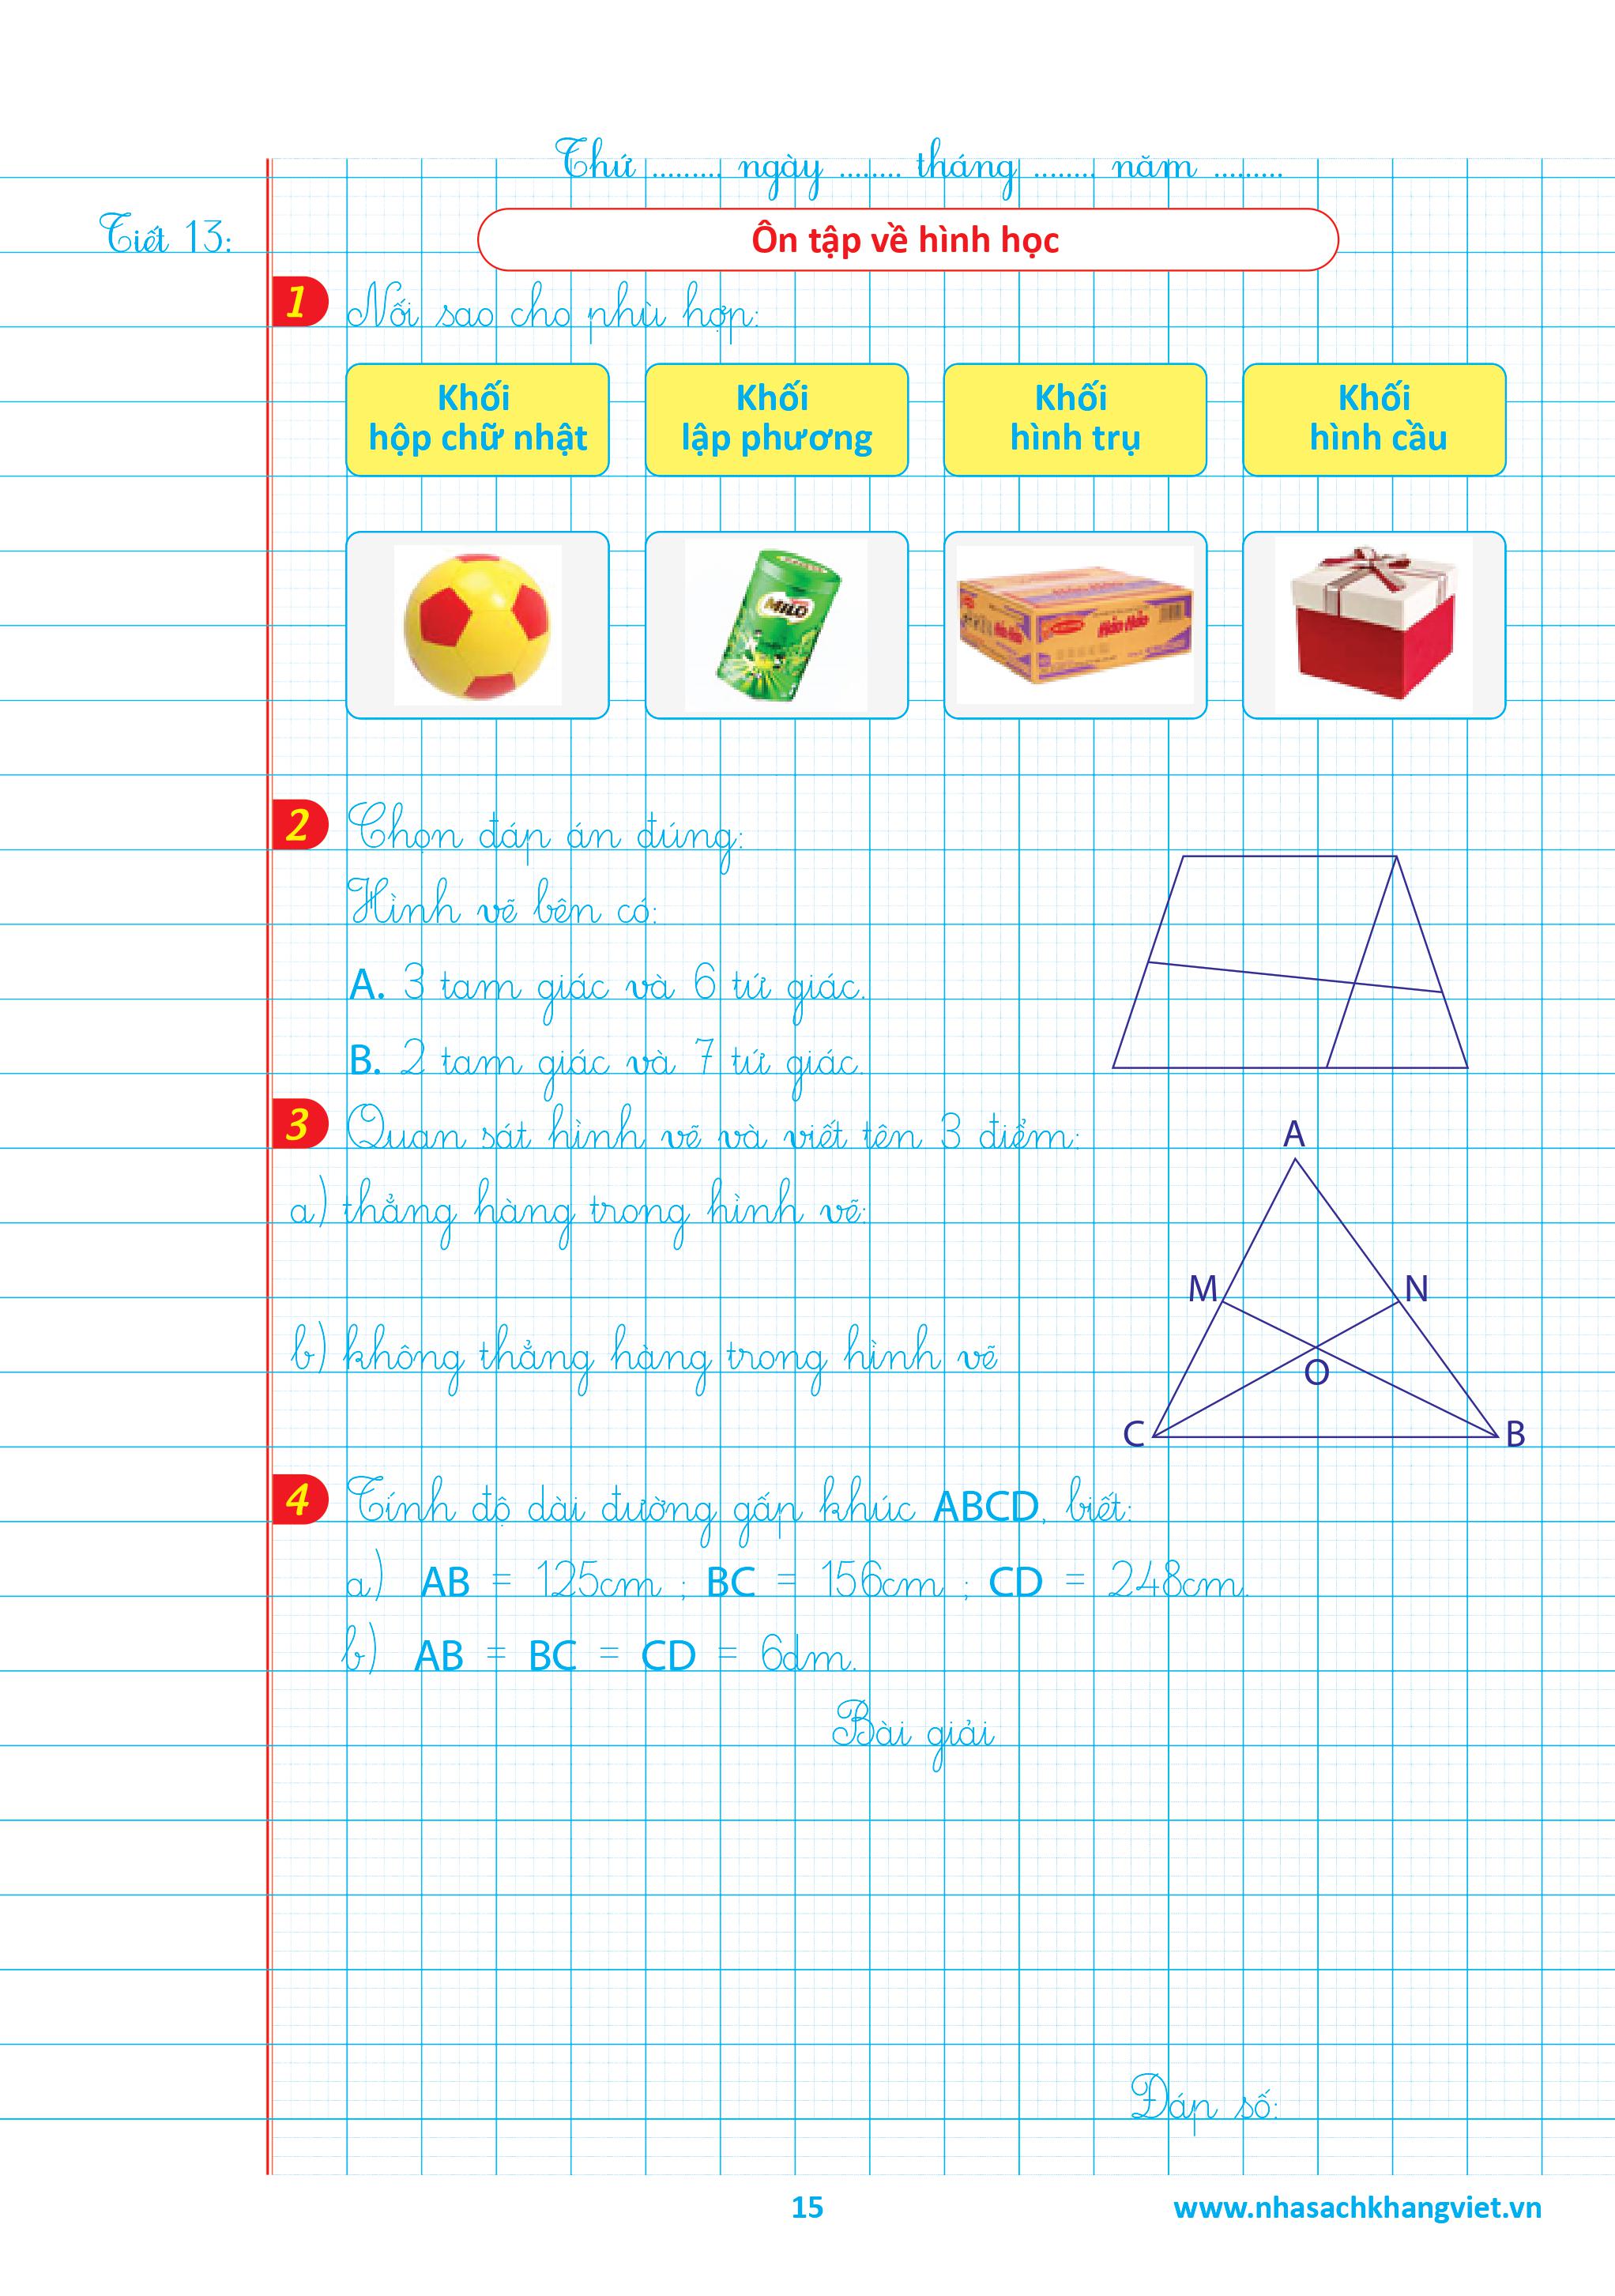 Thứ ......... ngày ........ tháng ........ năm .........
Tiết 13:
Ôn tập về hình học
1 Nối sao cho phù hợp:
Khối
hộp chữ nhật
Khối
lập phương
Khối
hình trụ
Khối
hình cầu
MILO
Hảo Hảo
Hảo Hảo
2 Chọn đáp án đúng:
Hình vẽ bên có:
A. 3 tam giác và 6 tứ giác.
B. 2 tam giác và 7 tứ giác.
3 Quan sát hình vẽ và viết tên 3 điểm:
a) thẳng hàng trong hình vẽ:
b) không thẳng hàng trong hình vẽ
A
M
N
O
C
B
4 Tính độ dài đường gấp khúc ABCD, biết:
a) AB = 125cm ; BC = 156cm ; CD = 248cm.
b) AB = BC = CD = 6dm.
Bài giải
Đáp số:
15
www.nhasachkhangviet.vn